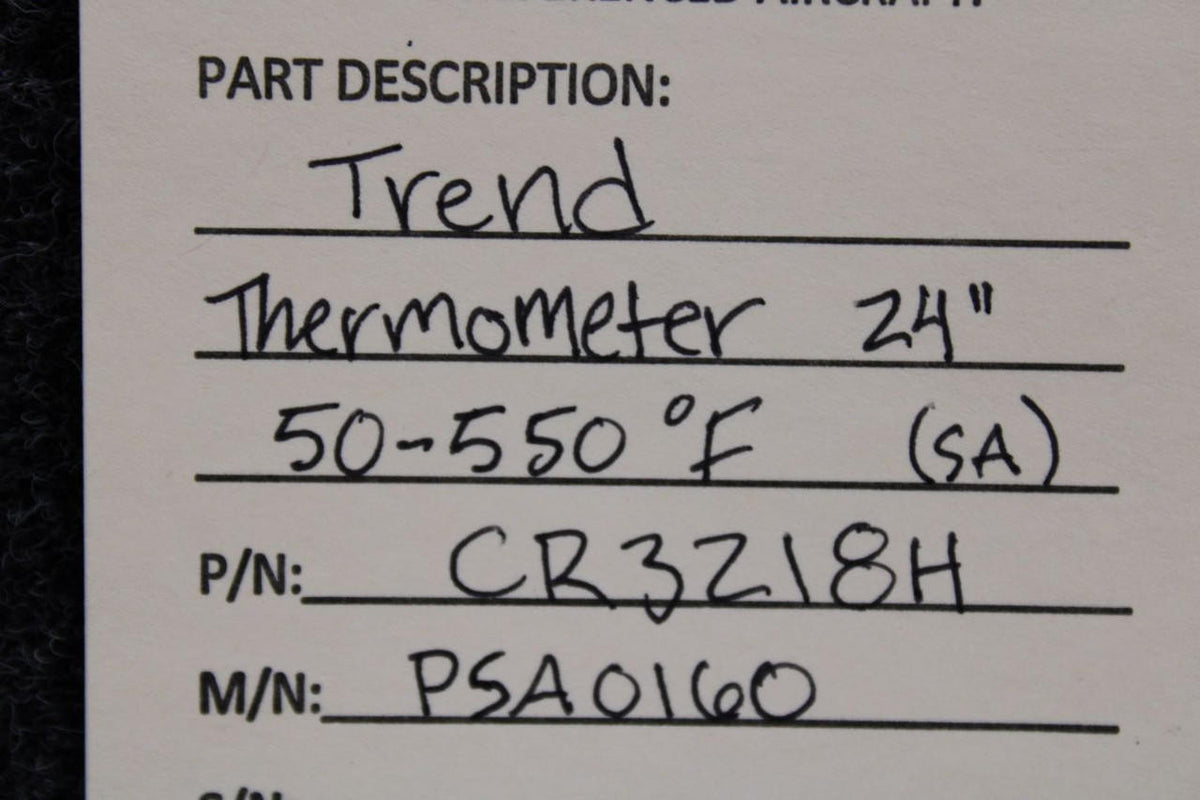 PART DESCRIPTION:
Trend
Thermometer 24"
50-550 °F (SA)
P/N: CR3218H
M/N: PSA0160